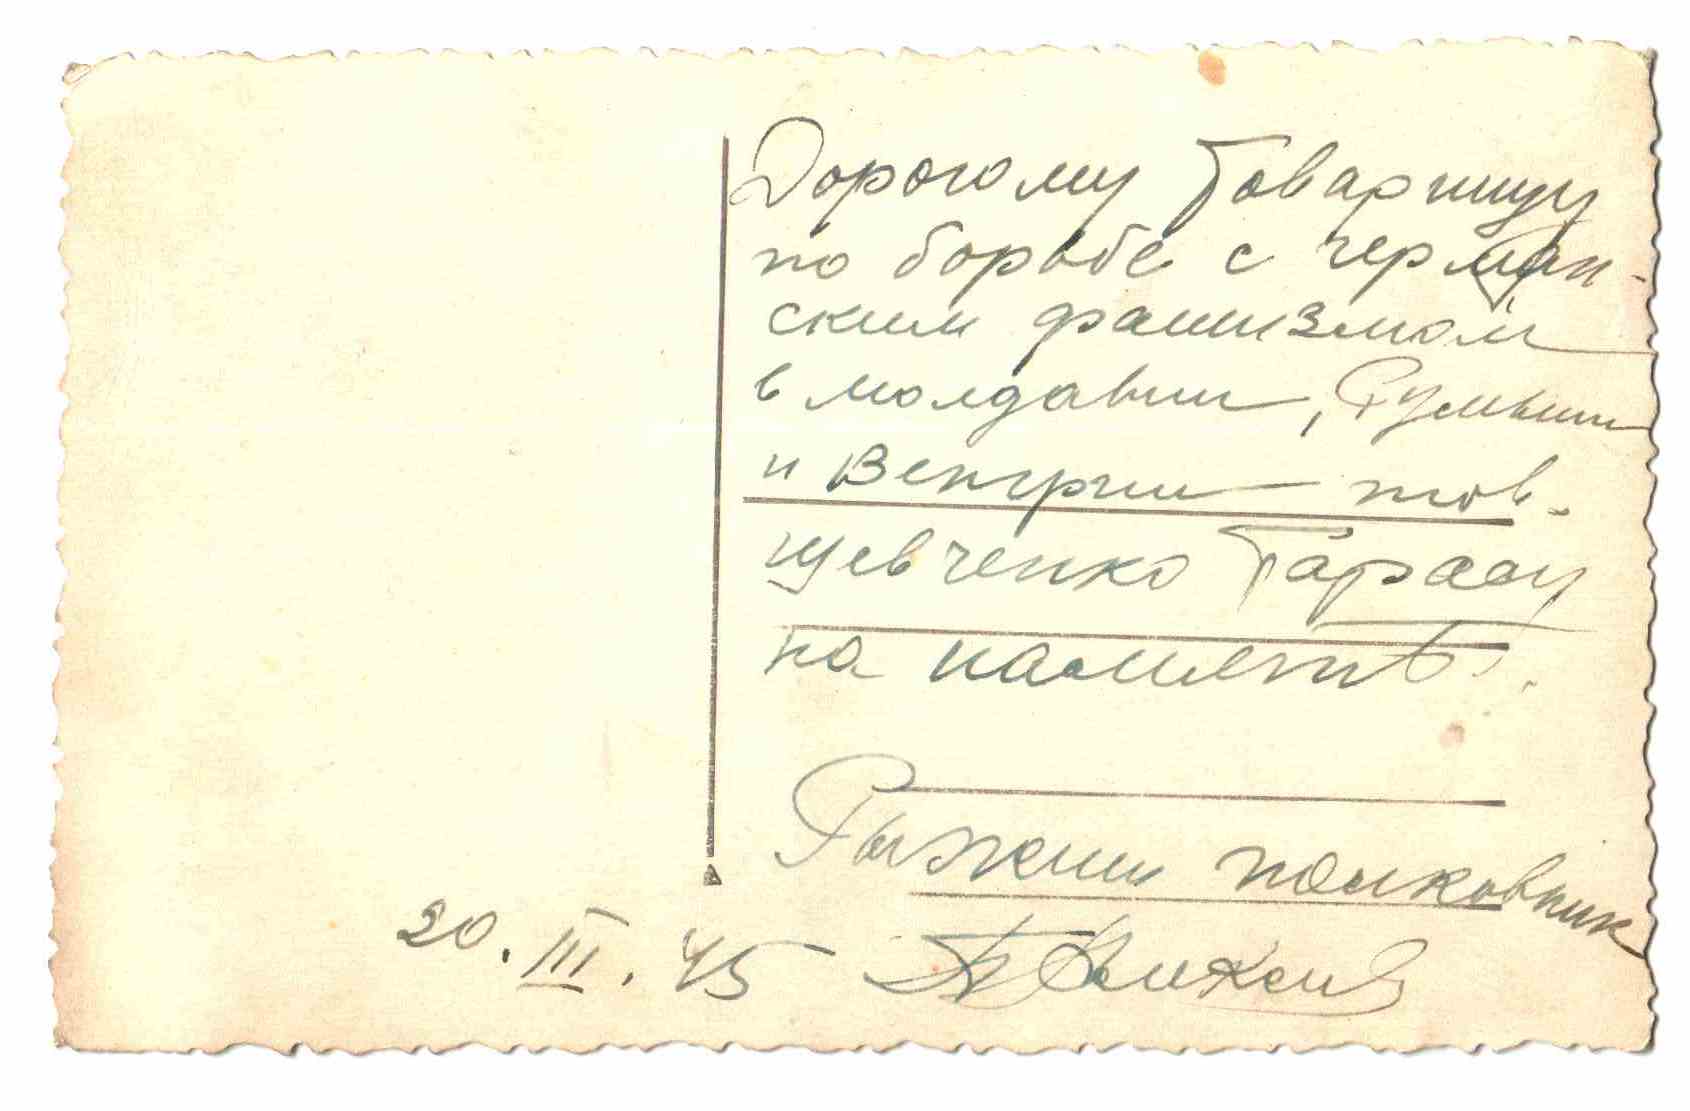 Дорогому Товарищу
по борьбе с герман-
ским фашизмом
в молдавии, Румынии
и Венгрии тов.
Шевченко Тарасу
на память.
Рыжий полковник
20.III.45